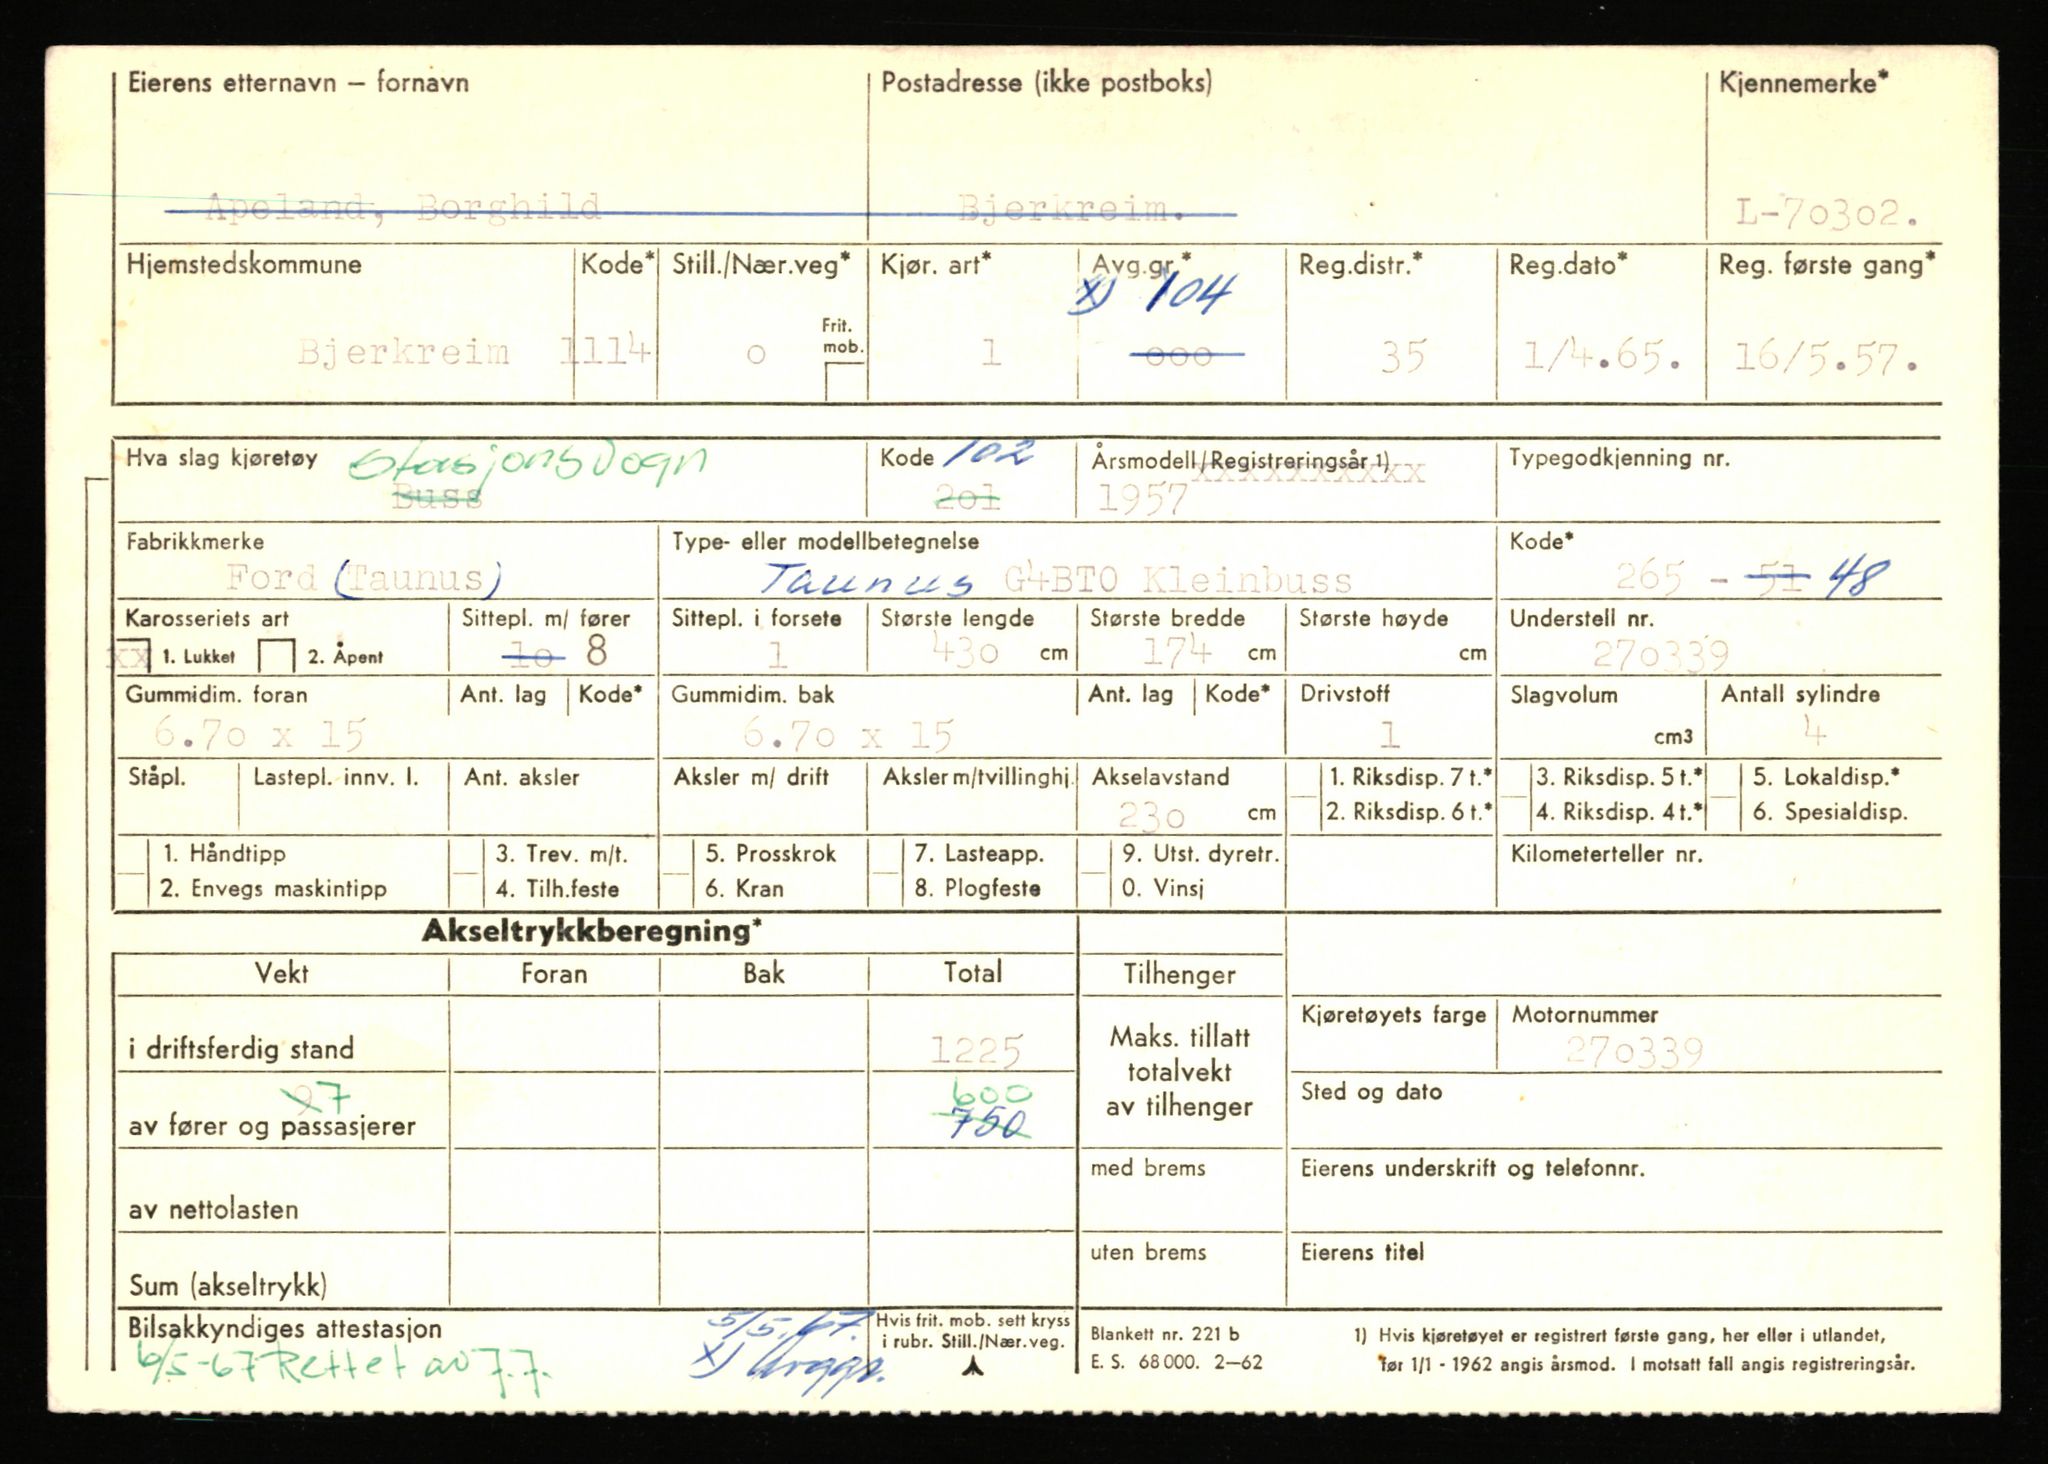 Eierens etternavn – fornavn Postadresse (ikke postboks) Kjennemerke*
Apeland, Borghild Bjerkreim. L-70302.
Hjemstedskommune Kode* Still./Nær.veg* Kjør. art* Avg.gr.* Reg.distr.* Reg.dato* Reg. første gang*
x) 104
Frit.
mob.
Bjerkreim 1114 0 1 000 35 1/4.65. 16/5.57.
Hva slag kjøretøy Stasjonsvogn Kode 102 Årsmodell/Registreringsår 1) Typegodkjenning nr.
xxxxxxxxxx
Buss 201 1957
Fabrikkmerke Type- eller modellbetegnelse Kode*
Ford (Taunus) Taunus G4BTO Kleinbuss 265 - 51 48
Karosseriets art Sittepl. m/ fører Sittepl. i forsete Største lengde Største bredde Største høyde Understell nr.
xx 1. Lukket 2. Åpent 10 8 1 430 cm 174 cm cm 270339
Gummidim. foran Ant. lag Kode* Gummidim. bak Ant. lag Kode* Drivstoff Slagvolum Antall sylindre
6.70 x 15 6.70 x 15 1 cm3 4
Ståpl. Lastepl. innv. l. Ant. aksler Aksler m/ drift Aksler m/tvillinghj. Akselavstand 1. Riksdisp. 7 t.* 3. Riksdisp. 5 t.* 5. Lokaldisp.*
230 cm 2. Riksdisp. 6 t.* 4. Riksdisp. 4 t.* 6. Spesialdisp.
1. Håndtipp 3. Trev. m/t. 5. Prosskrok 7. Lasteapp. 9. Utst. dyretr. Kilometerteller nr.
2. Envegs maskintipp 4. Tilh.feste 6. Kran 8. Plogfeste 0. Vinsj
Akseltrykkberegning*
Vekt Foran Bak Total Tilhenger
Kjøretøyets farge Motornummer
i driftsferdig stand 1225 Maks. tillatt 270339
totalvekt
av tilhenger
9 7 600 Sted og dato
av fører og passasjerer 750
med brems Eierens underskrift og telefonnr.
av nettolasten
uten brems Eierens titel
Sum (akseltrykk)
Bilsakkyndiges attestasjon 5/5.67. Hvis frit. mob. sett kryss
i rubr. Still./Nær.veg.
6/5-67 Rettet av J.J. x)
Blankett nr. 221 b
E. S. 68 000. 2–62
1) Hvis kjøretøyet er registrert første gang, her eller i utlandet,
før 1/1 - 1962 angis årsmod. I motsatt fall angis registreringsår.